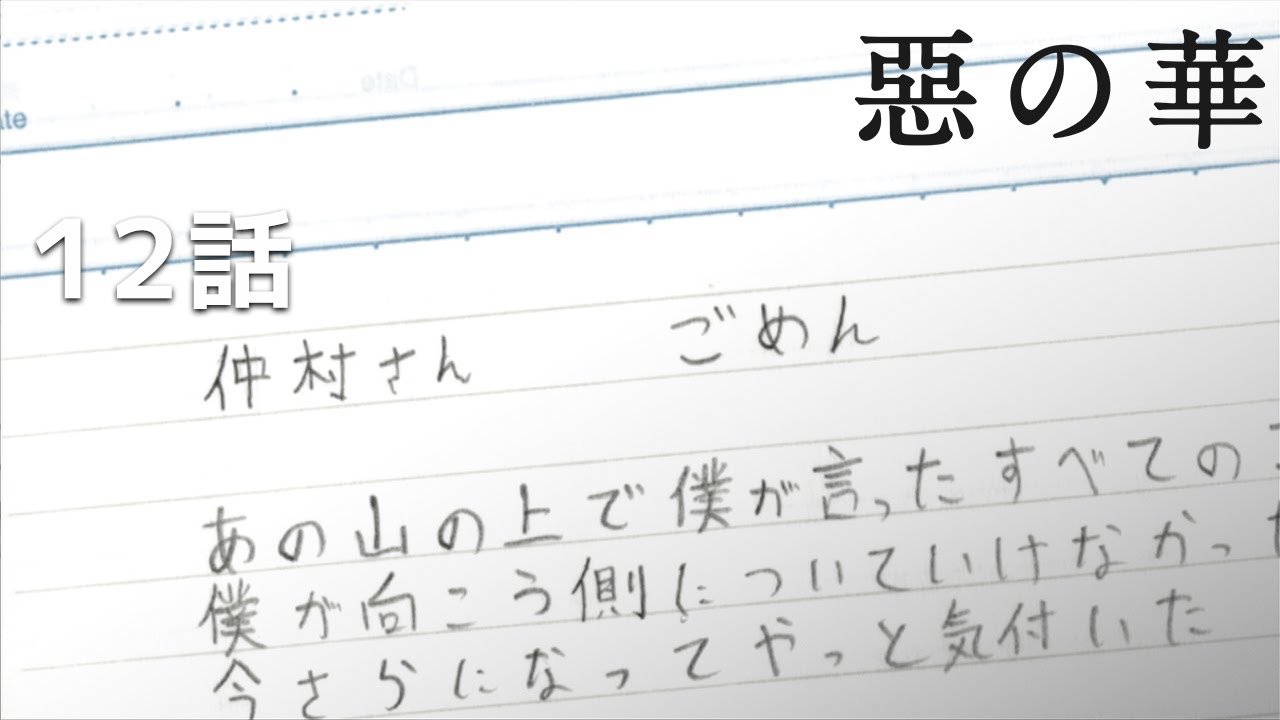 惡の華
Date
ate
12話
仲村さん ごめん
あの山の上で僕が言ったすべての
僕が向こう側についていけなかっ
今さらになってやっと気付いた